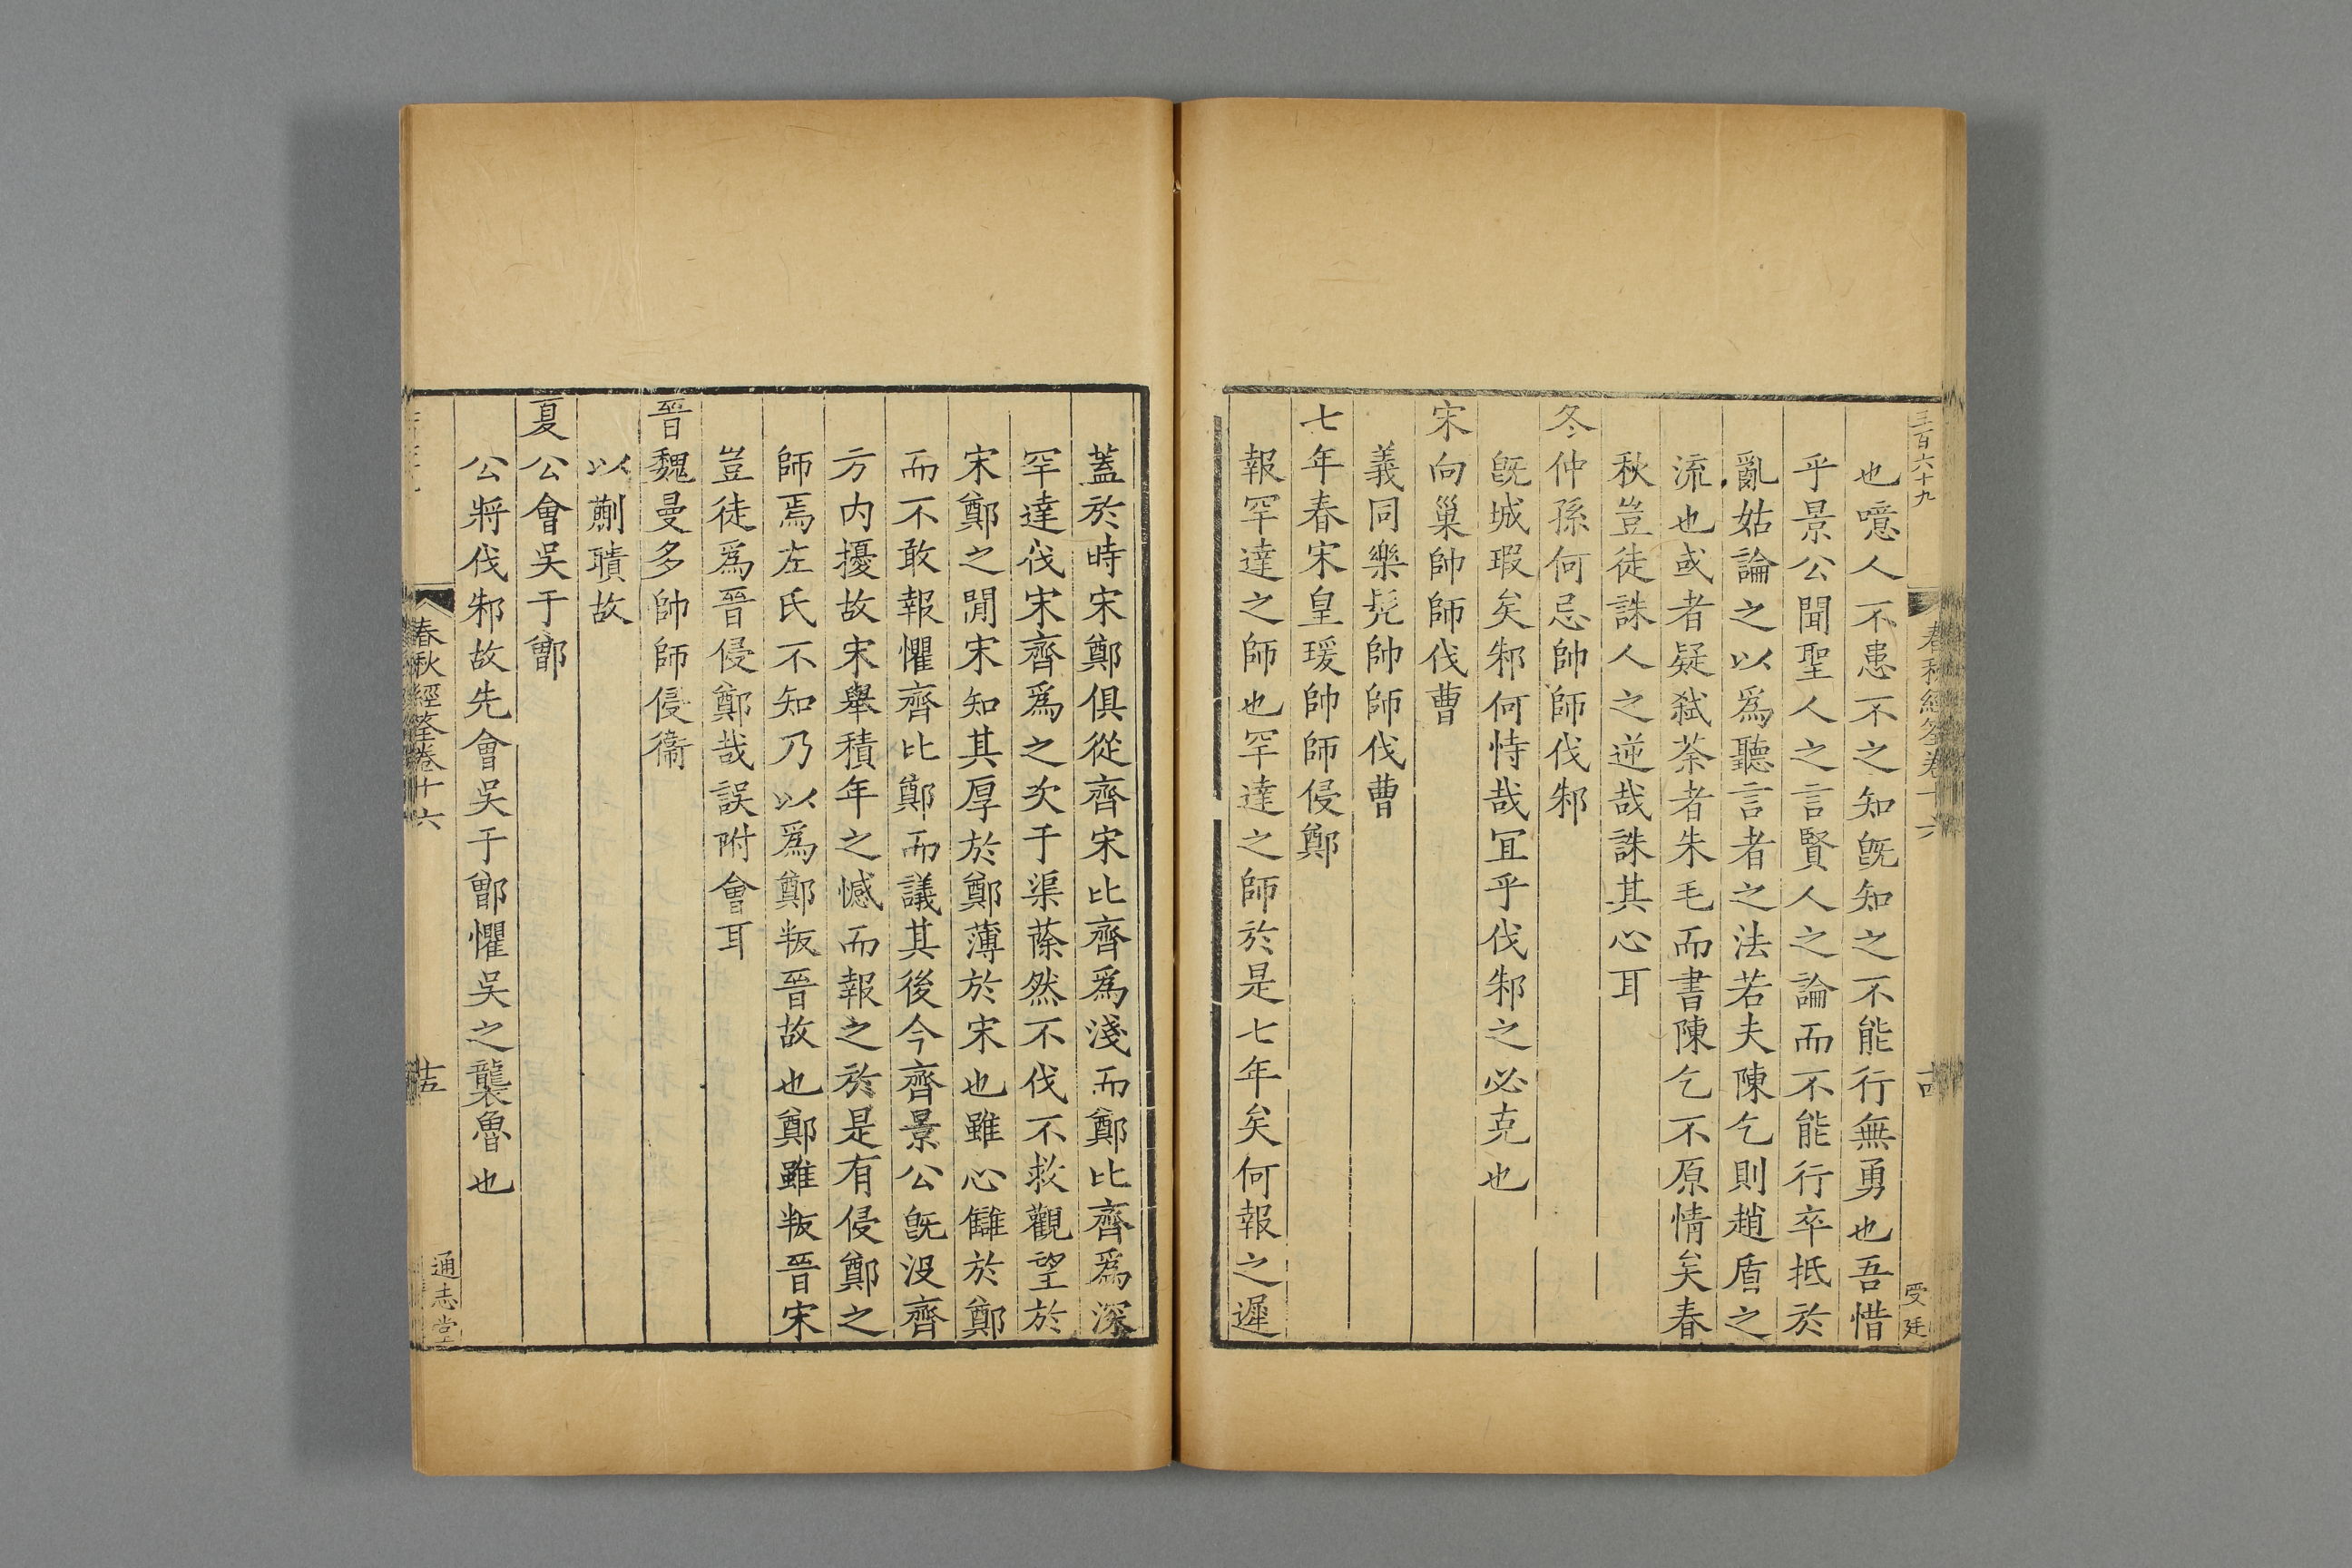 三百六十九
春秋經筌卷十六
十四
受廷
也噫人不患不之知旣知之不能行無勇也吾惜
乎景公聞聖人之言賢人之論而不能行卒抵於
亂姑論之以爲聽言者之法若夫陳乞則趙盾之
流也或者疑弑荼者朱毛而書陳乞不原情矣春
秋豈徒誅人之逆哉誅其心耳
冬仲孫何忌帥師伐邾
旣城瑕矣邾何恃哉冝乎伐邾之必克也
宋向巢帥師伐曹
義同樂髠帥師伐曹
七年春宋皇瑗帥師侵鄭
報罕達之師也罕達之師於是七年矣何報之遲
蓋於時宋鄭俱從齊宋比齊爲淺而鄭比齊爲深
罕達伐宋齊爲之次于渠蒢然不伐不救觀望於
宋鄭之閒宋知其厚於鄭薄於宋也雖心讎於鄭
而不敢報懼齊比鄭而議其後今齊景公旣沒齊
方内擾故宋舉積年之憾而報之於是有侵鄭之
師焉左氏不知乃以爲鄭叛晉故也鄭雖叛晉宋
豈徒爲晉侵鄭哉誤附會耳
晉魏曼多帥師侵衞
以蒯聵故
夏公會吳于鄫
公將伐邾故先會吳于鄫懼吳之襲魯也
春秋經筌卷十六
十五
通志堂